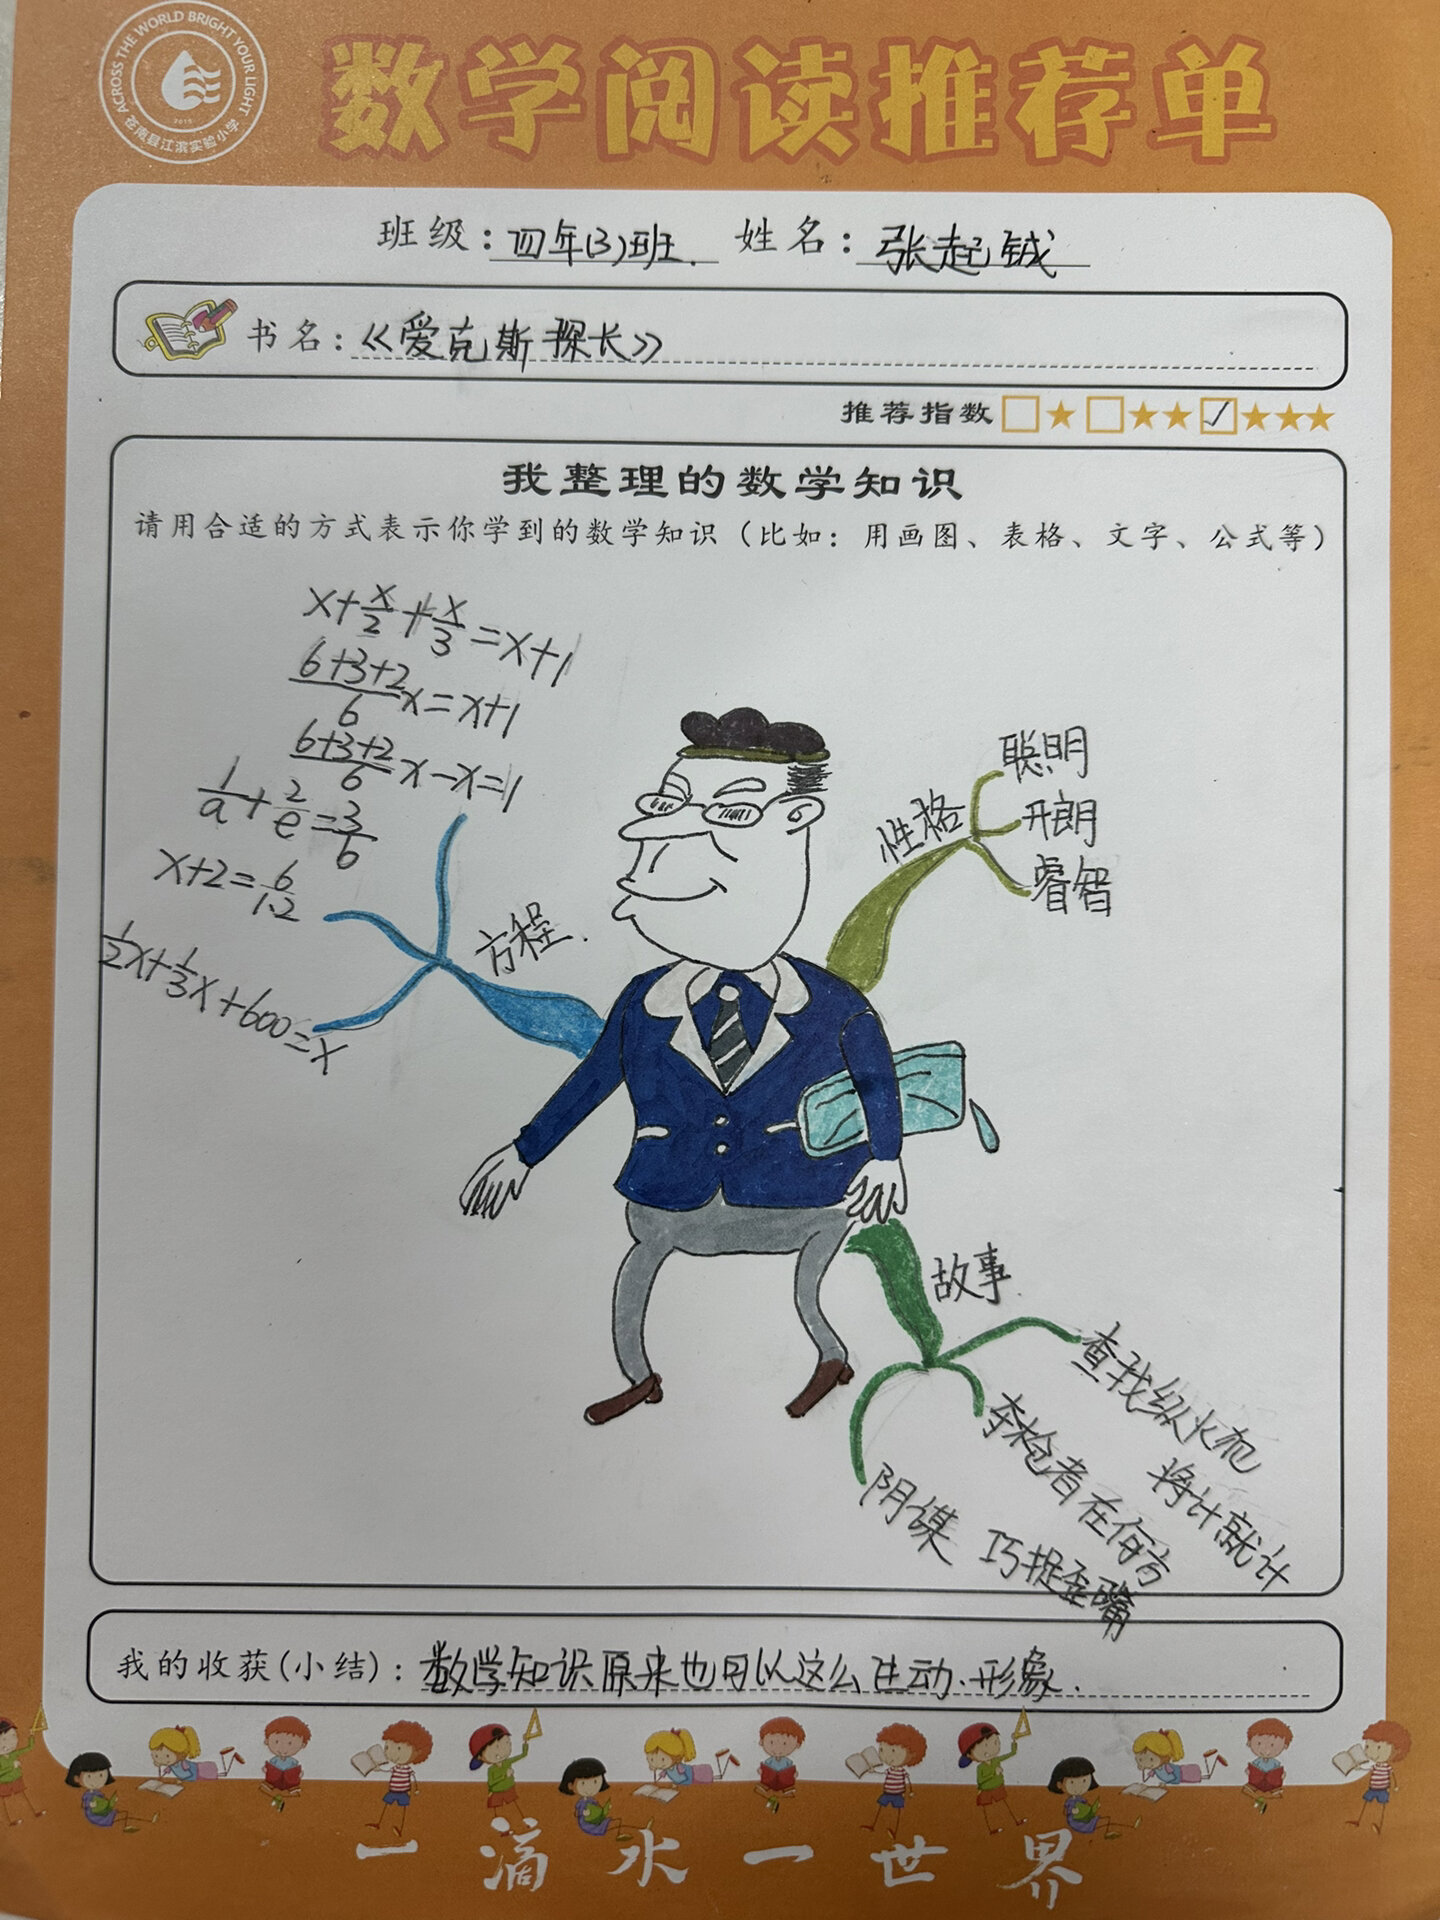 ACROSS THE WORLD BRIGHT YOUR LIGHT
2015
苍南县江滨实验小学
数学阅读推荐单
班级：四年(3)班. 姓名：张起铖
书名：《爱克斯探长》
推荐指数 □★ □★★ ☑★★★
我整理的数学知识
请用合适的方式表示你学到的数学知识（比如：用画图、表格、文字、公式等）
x+x/2+x/3=x+1
(6+3+2)/6 x=x+1
(6+3+2)/6 x-x=1
1/a+2/e=3/b
x+2=6/12
1/2x+1/3x+600=x
方程.
性格
聪明
开朗
睿智
故事.
查找纵火犯
将计就计
夺枪者在何方
阴谋 巧捉歪嘴
我的收获(小结)：数学知识原来也可以这么生动.形象.
一滴水一世界